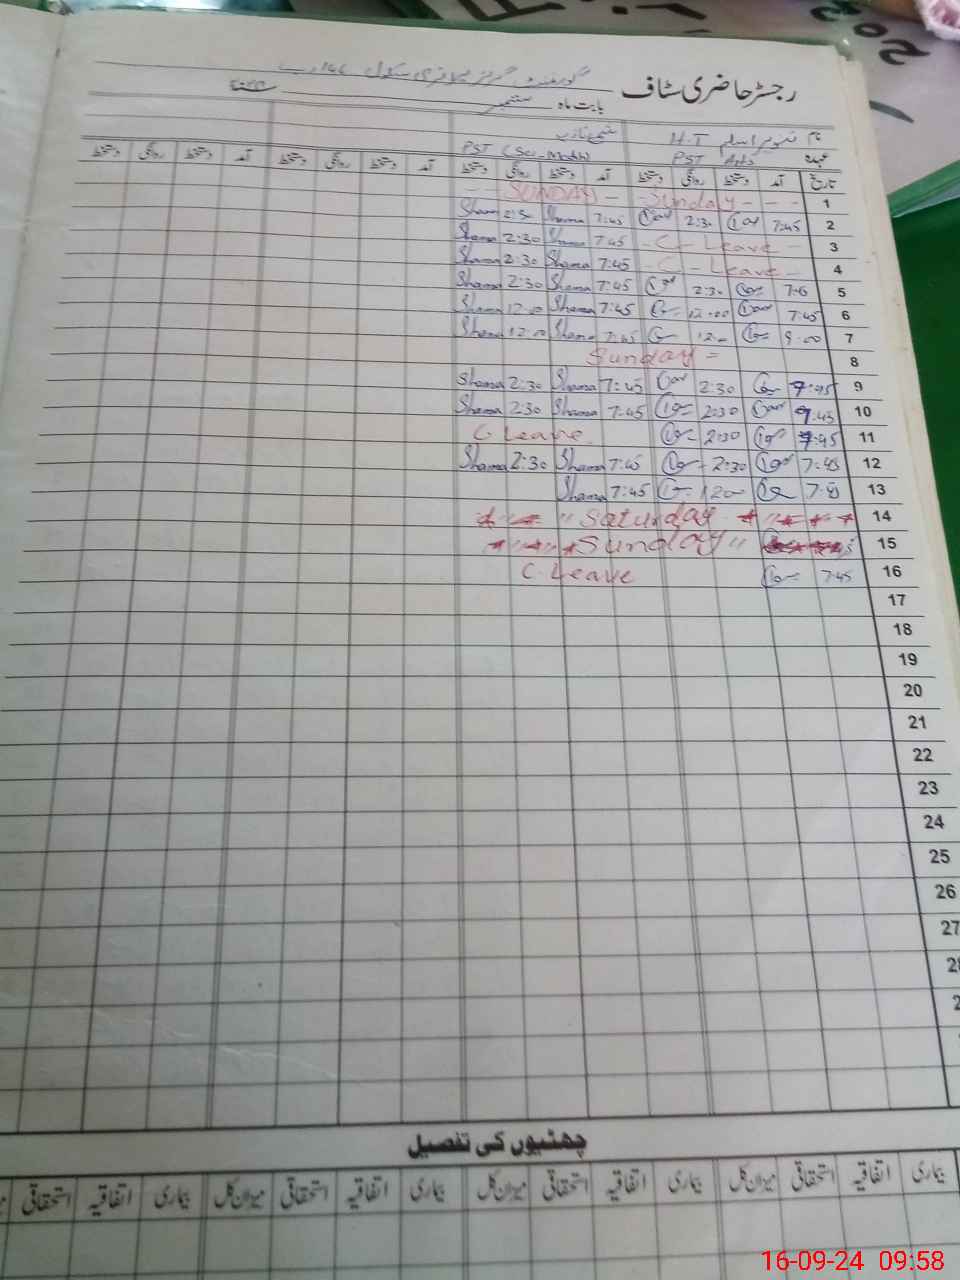 رجسٹر حاضری سٹاف گورنمنٹ گرلز پرائمری سکول
بابت ماہ ستمبر
نام تنویر اسلم H.T
عہدہ PST PST (Sci-Math)
تاریخ آمد دستخط روانگی دستخط آمد دستخط روانگی دستخط آمد دستخط روانگی دستخط آمد دستخط روانگی دستخط
1 - Sunday - - - - - SUNDAY -
2 7:45 2:30 7:45 Shama 2:30 Shama
3 - C - Leave - 7:45 Shama 2:30 Shama
4 - C - Leave - 7:45 Shama 2:30 Shama
5 2:30 7:45 Shama 2:30 Shama
6 7:45 12:00 7:45 Shama 12:00 Shama
7 7:45 Shama 12:00 Shama
8 Sunday =
9 2:30 7:45 Shama 2:30 Shama
10 2:30 7:45 Shama 2:30 Shama
11 2:30 C. Leave
12 7:45 2:30 7:45 Shama 2:30 Shama
13 7:45 1200 7:45 Shama
14 " Saturday "
15 Sunday "
16 7:45 C. Leave
17
18
19
20
21
22
23
24
25
26
27
چھٹیوں کی تفصیل
بیماری اتفاقیہ استحقاقی میزان کل بیماری اتفاقیہ استحقاقی میزان کل بیماری اتفاقیہ استحقاقی میزان کل بیماری اتفاقیہ استحقاقی
16-09-24 09:58